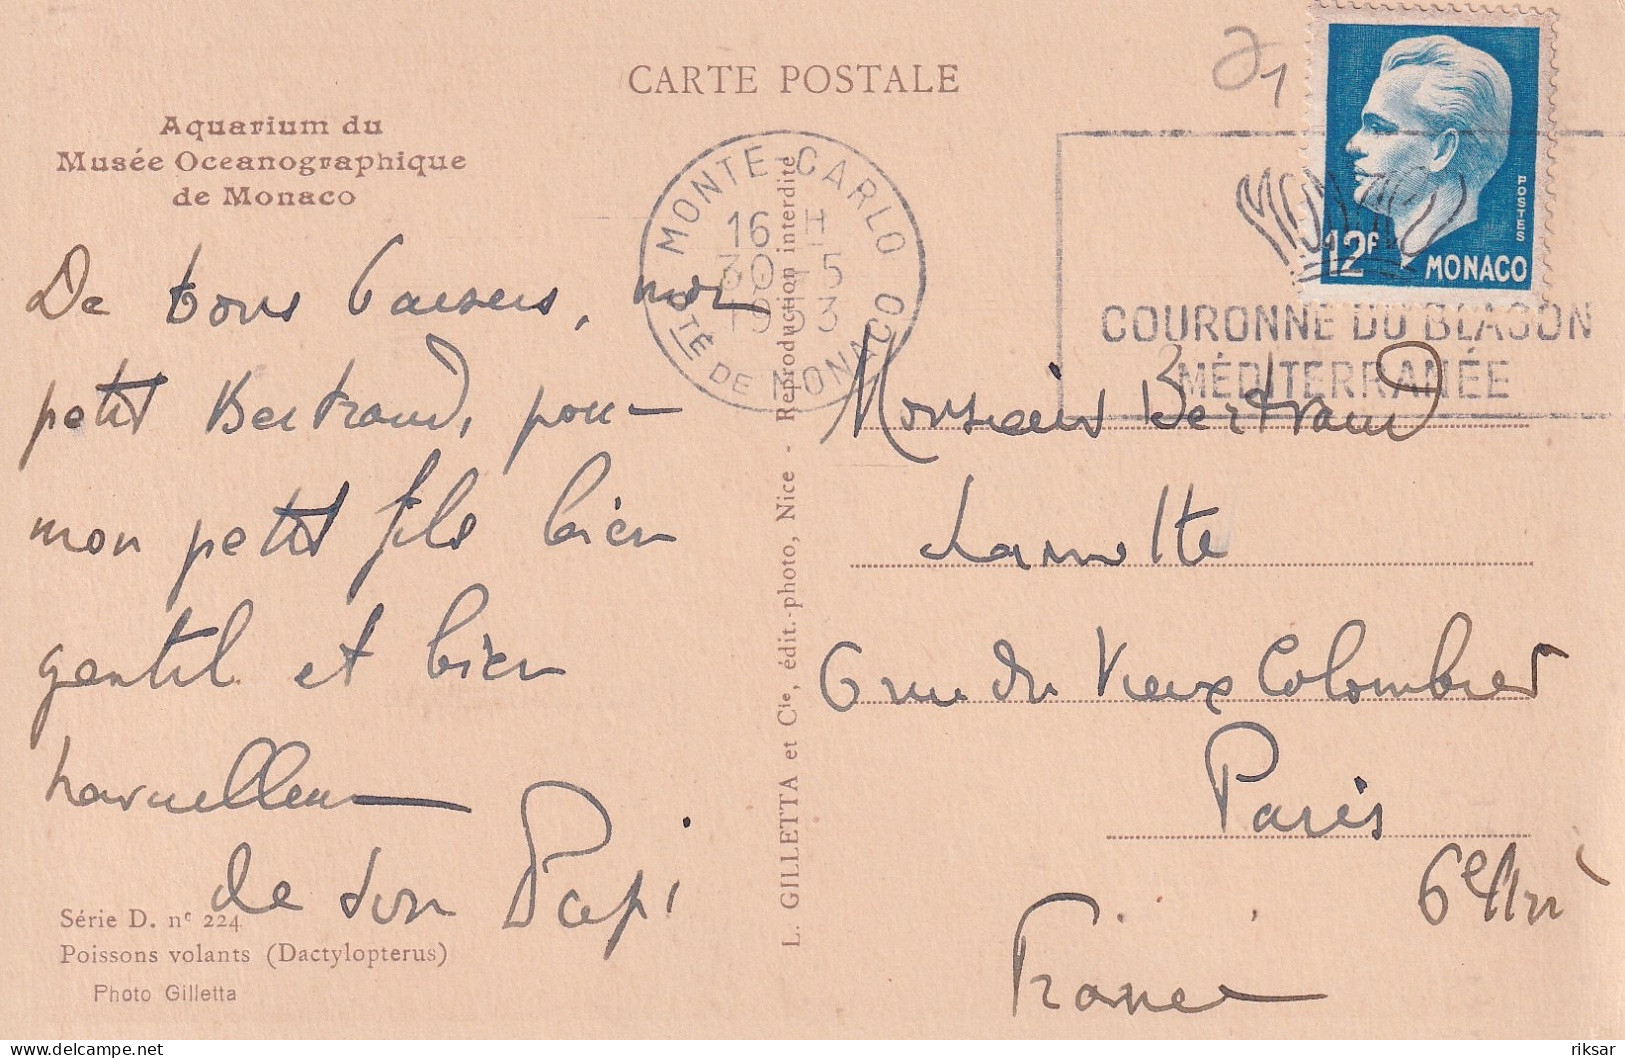 CARTE POSTALE
Aquarium du
Musée Oceanographique
de Monaco
De tous baisers, mon
petit Bertrand, pour
mon petit fils bien
gentil et bien
travailleur
de son Papi
Série D. nº 224
Poissons volants (Dactylopterus)
Photo Gilletta
L. GILLETTA et Cie, édit.-photo, Nice - Reproduction interdite
MONTE-CARLO
16 H
30-5
1953
PTÉ DE MONACO
MONACO
COURONNE DU BLASON
MÉDITERRANÉE
POSTES
12F MONACO
Monsieur Bertrand
Lamotte
6 rue du Vieux Colombier
Paris
6e Arr
France
riksar